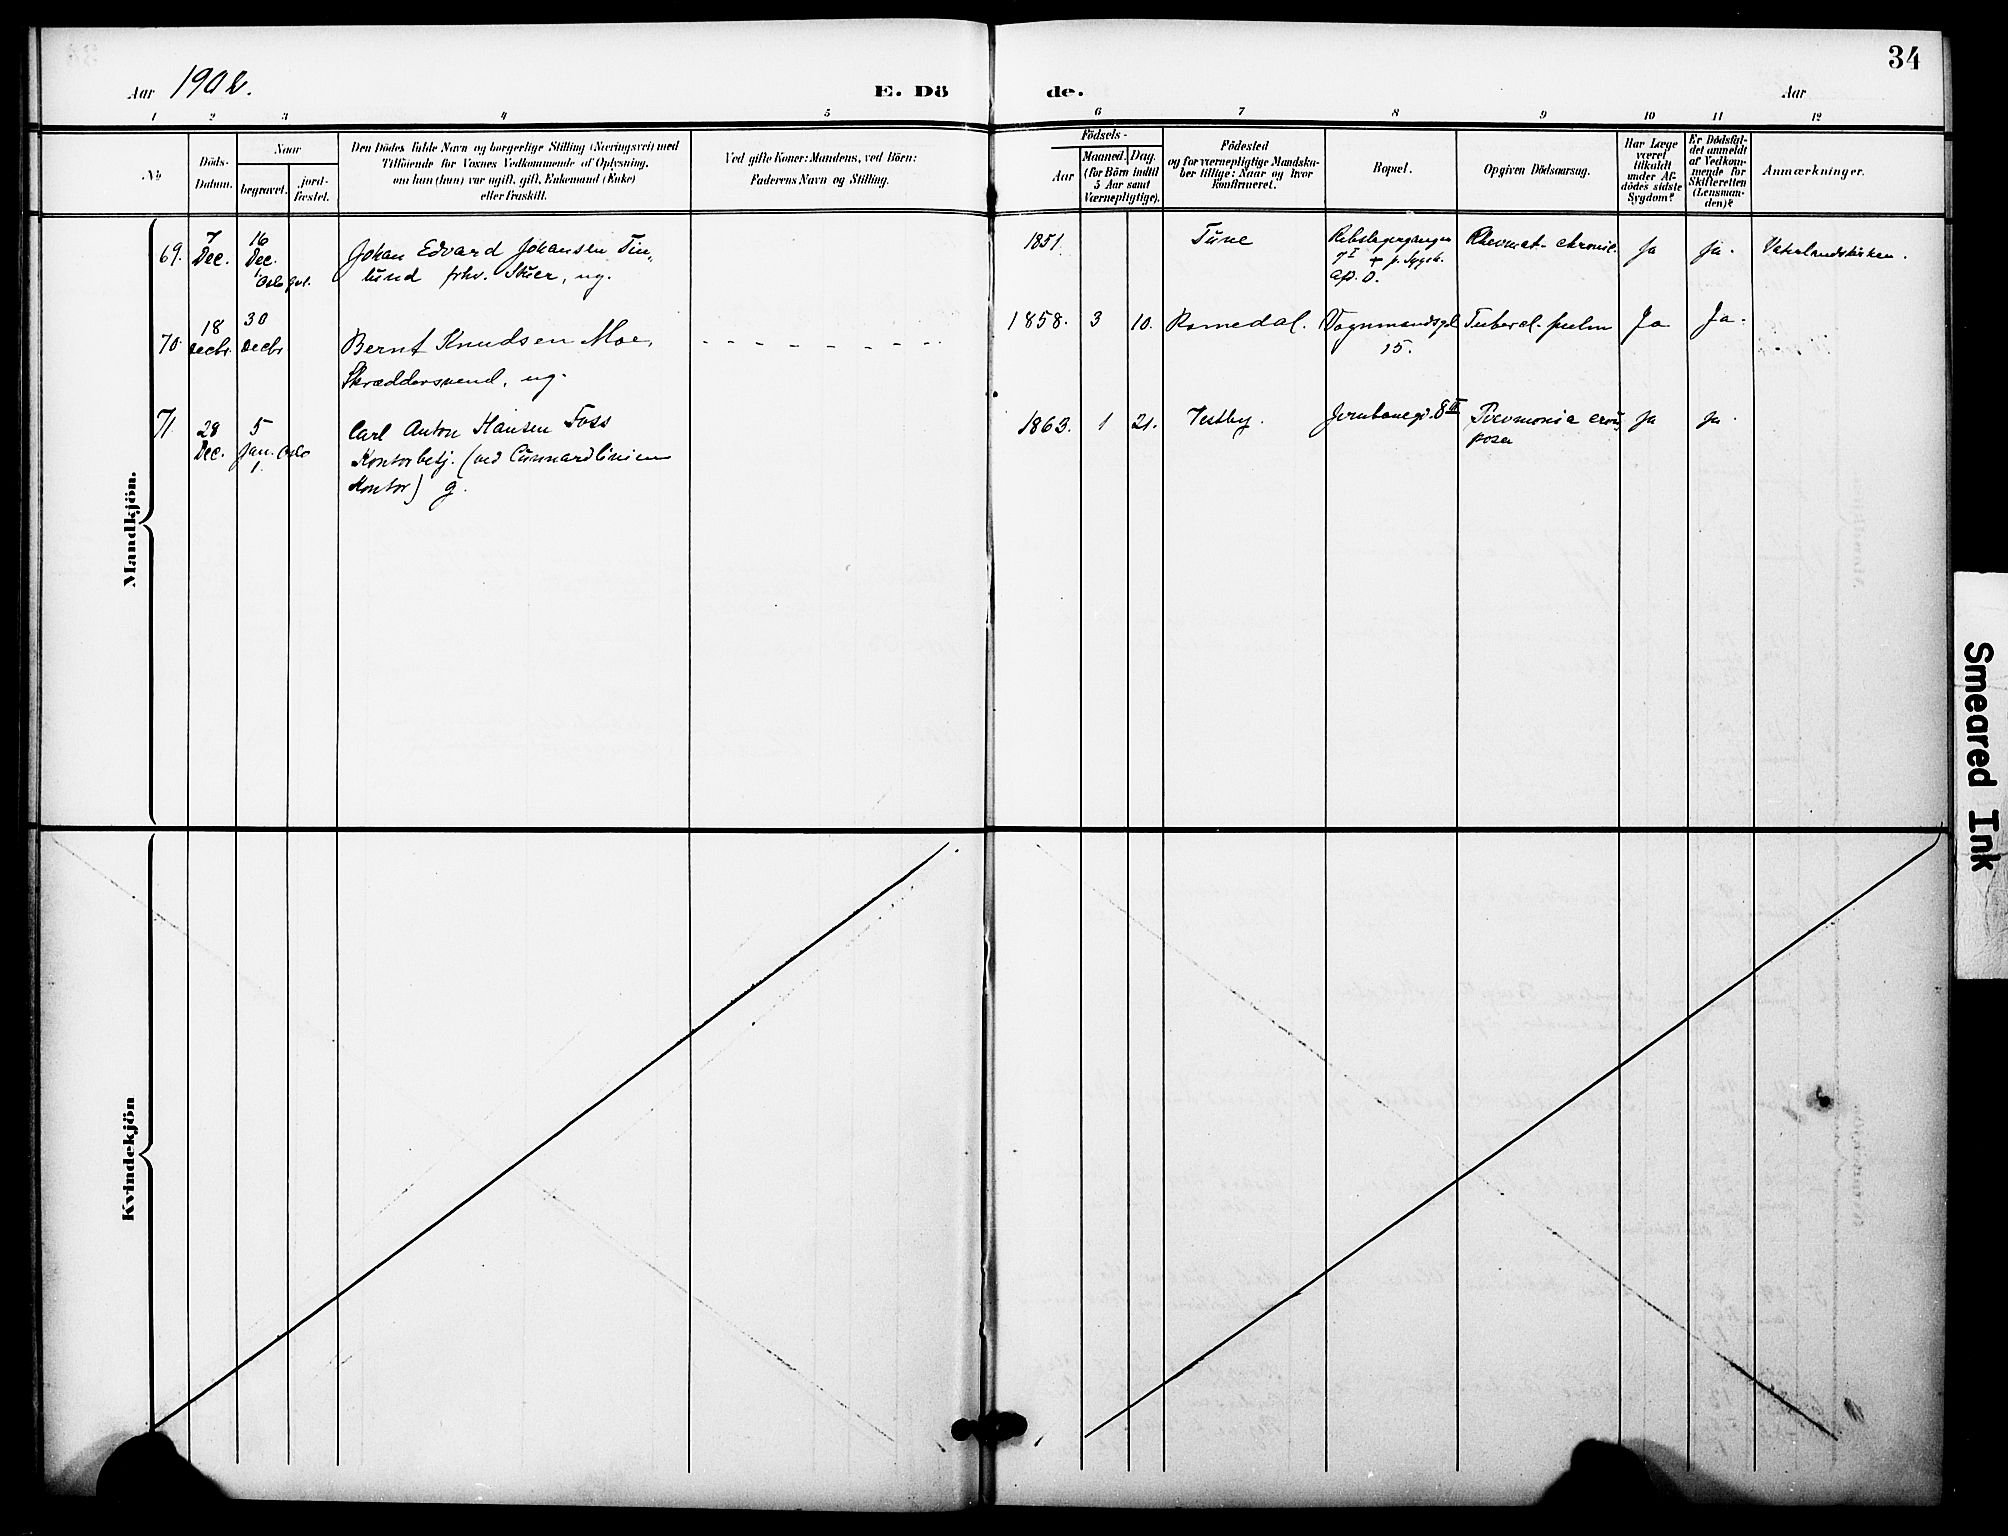 34
Aar 1902.
E. Dö
de.
Aar
1 2 3 4 5 6 7 8 9 10 11 12
No
Döds-
Datum.
Naar
begravet.
jord-
fæstet.
Den Dödes fulde Navn og borgerlige Stilling (Næringsvei) med
Tilföiende for Voxnes Vedkommende af Oplysning,
om han (hun) var ugift, gift, Enkemand (Enke)
eller fraskilt.
Ved gifte Koner: Mandens, ved Börn:
Faderens Navn og Stilling.
Födsels-
Aar
Maaned. Dag.
(for Börn indtil
5 Aar samt
Værnepligtige).
Födested
og for værnepligtige Mandska-
ber tillige: Naar og hvor
konfirmeret.
Bopæl.
Opgiven Dödsaarsag.
Har Læge
været
tilkaldt
under Af-
dödes sidste
Sygdom?
Er Dödsfal-
det anmeldt
af Vedkom-
mende for
Skifteretten
(Lensman-
den)?
Anmærkninger.
Mandkjön.
69. 7 Dec. 16 Dec. Oslo
Johan Edvard Johansen
lund fhv. Skuer, ug.
1851. Tune
p. Sygeh.
Rheumat. chronic. Ja Ja. Vaterlandskirken.
70 18 Decbr. 30 Decbr
Bernt Knudsen Moe,
Skræddersvend, ug.
1858. 3 10. Romedal. Vognmandsgd
15.
Tubercl. pulm Ja Ja.
71 28 Dec. 5 Jan. Oslo
Carl Anton Hansen Foss
Kontorbetj. (ved Cunnardlinien
Kontor) g.
1863. 1 21. Vestby. Jernbanegd. 8 III
Pneumonia crou-
posa
Ja Ja
Kvindekjön
Smeared Ink